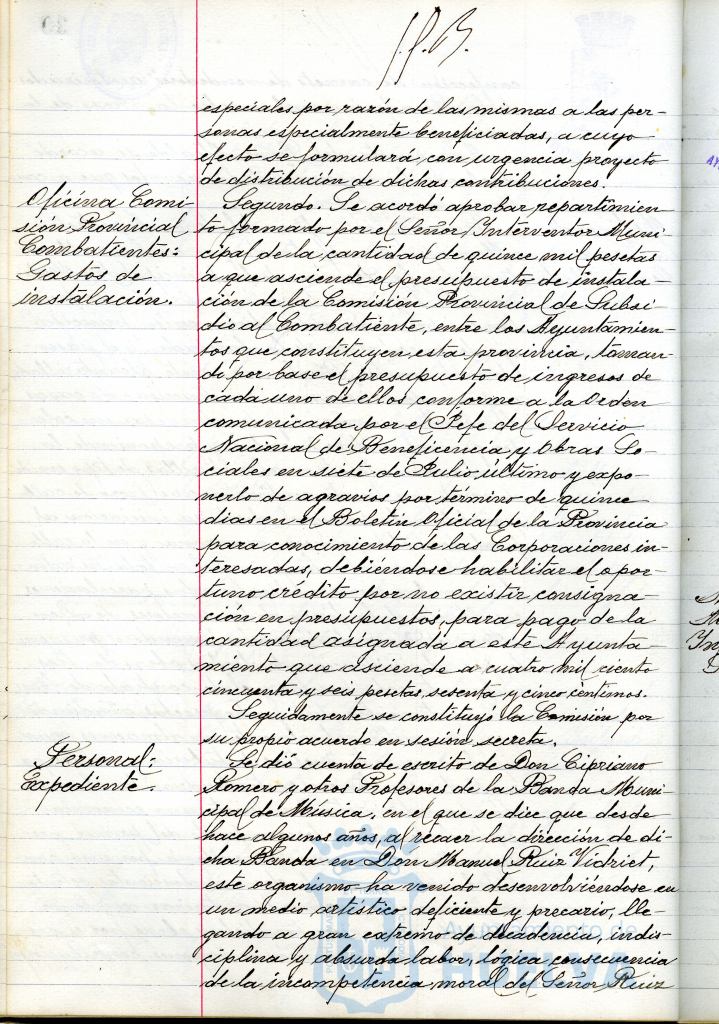 especiales por razón de las mismas a las per-
sonas especialmente beneficiadas, a cuyo
efecto se formulará con urgencia proyecto
de distribución de dichas contribuciones.
Oficina Comi-
sión Provincial
Combatientes:
Gastos de
instalación.
Segundo. Se acordó aprobar repartimien-
to formado por el Señor Interventor Muni-
cipal de la cantidad de quince mil pesetas
a que asciende el presupuesto de instala-
ción de la Comisión Provincial de Subsi-
dio al Combatiente, entre los Ayuntamien-
tos que constituyen esta provincia, toman-
do por base el presupuesto de ingresos de
cada uno de ellos, conforme a la Orden
comunicada por el Jefe del Servicio
Nacional de Beneficencia y Obras So-
ciales en siete de Julio último y expo-
nerlo de agravios por término de quince
dias en el Boletín Oficial de la Provincia
para conocimiento de las Corporaciones in-
teresadas, debiéndose habilitar el opor-
tuno crédito por no existir consigna-
ción en presupuestos, para pago de la
cantidad asignada a este Ayunta-
miento que asciende a cuatro mil ciento
cincuenta y seis pesetas, sesenta y cinco céntimos.
Seguidamente se constituyó la Comisión por
su propio acuerdo en sesión secreta.
Personal:
Expediente.
Se dió cuenta de escrito de Don Cipriano
Romero y otros Profesores de la Banda Muni-
cipal de Música, en el que se dice que desde
hace algunos años, al recaer la dirección de di-
cha Banda en Don Manuel Ruiz Vidriet,
este organismo ha venido desenvolviéndose en
un medio artístico deficiente y precario, lle-
gando a gran extremo de decadencia, indis-
ciplina y absurda labor, lógica consecuencia
de la incompetencia moral del Señor Ruiz
Ayuntamiento de
HUELVA